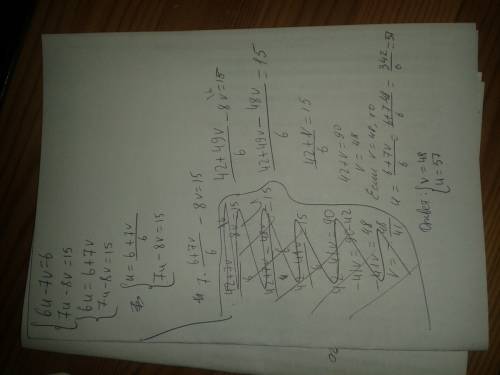 {6u-7v=6
{7u-8v=15
{6u=6+7v
{7u-8v=15
{u=6+7v/6
{7u-8v=15
7·6+7v/6-8v=15
42+49v/6-8v=15
42+49v-48v/6=15
42+v/6=15
42+v=90
v=48
Если v=48, то
u=6+7v/6=6+7·48/6=342/6=57
Ответ: {v=48
{u=57